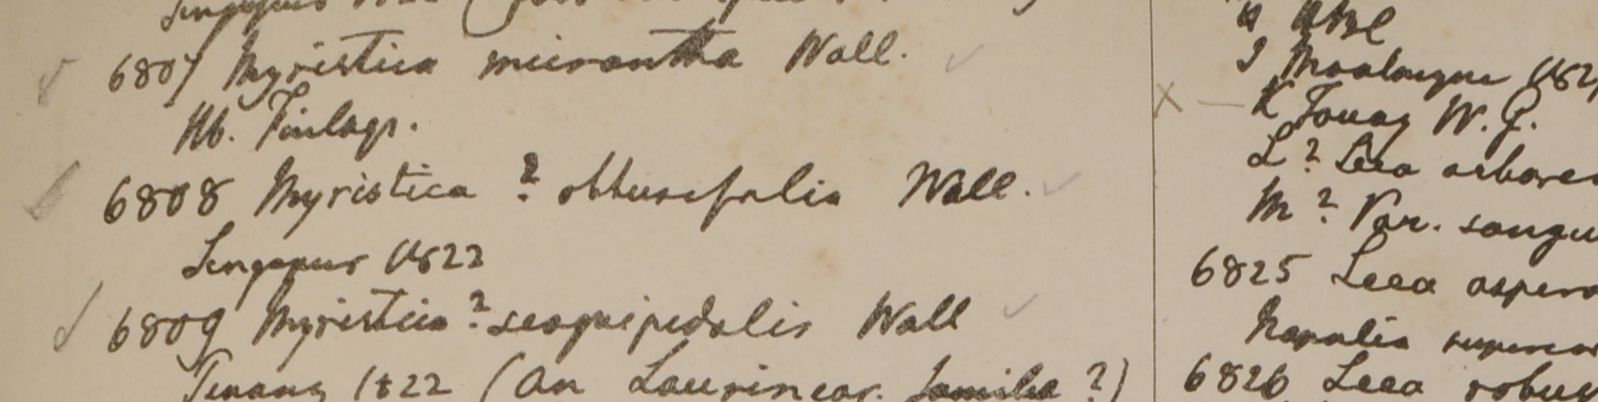 6807 Myristica micrantha Wall.
Hb. Finlays.
6808 Myristica ? obtusifolia Wall.
Singapur 1822
6809 Myristica ? sesquipedalis Wall
Penang 1822 (An Laurinear. familia ?)
K Tong W. G.
L ? Leea arborea
M ? Var. sangu
6825 Leea aspera
Napalia
6826 Leea robus